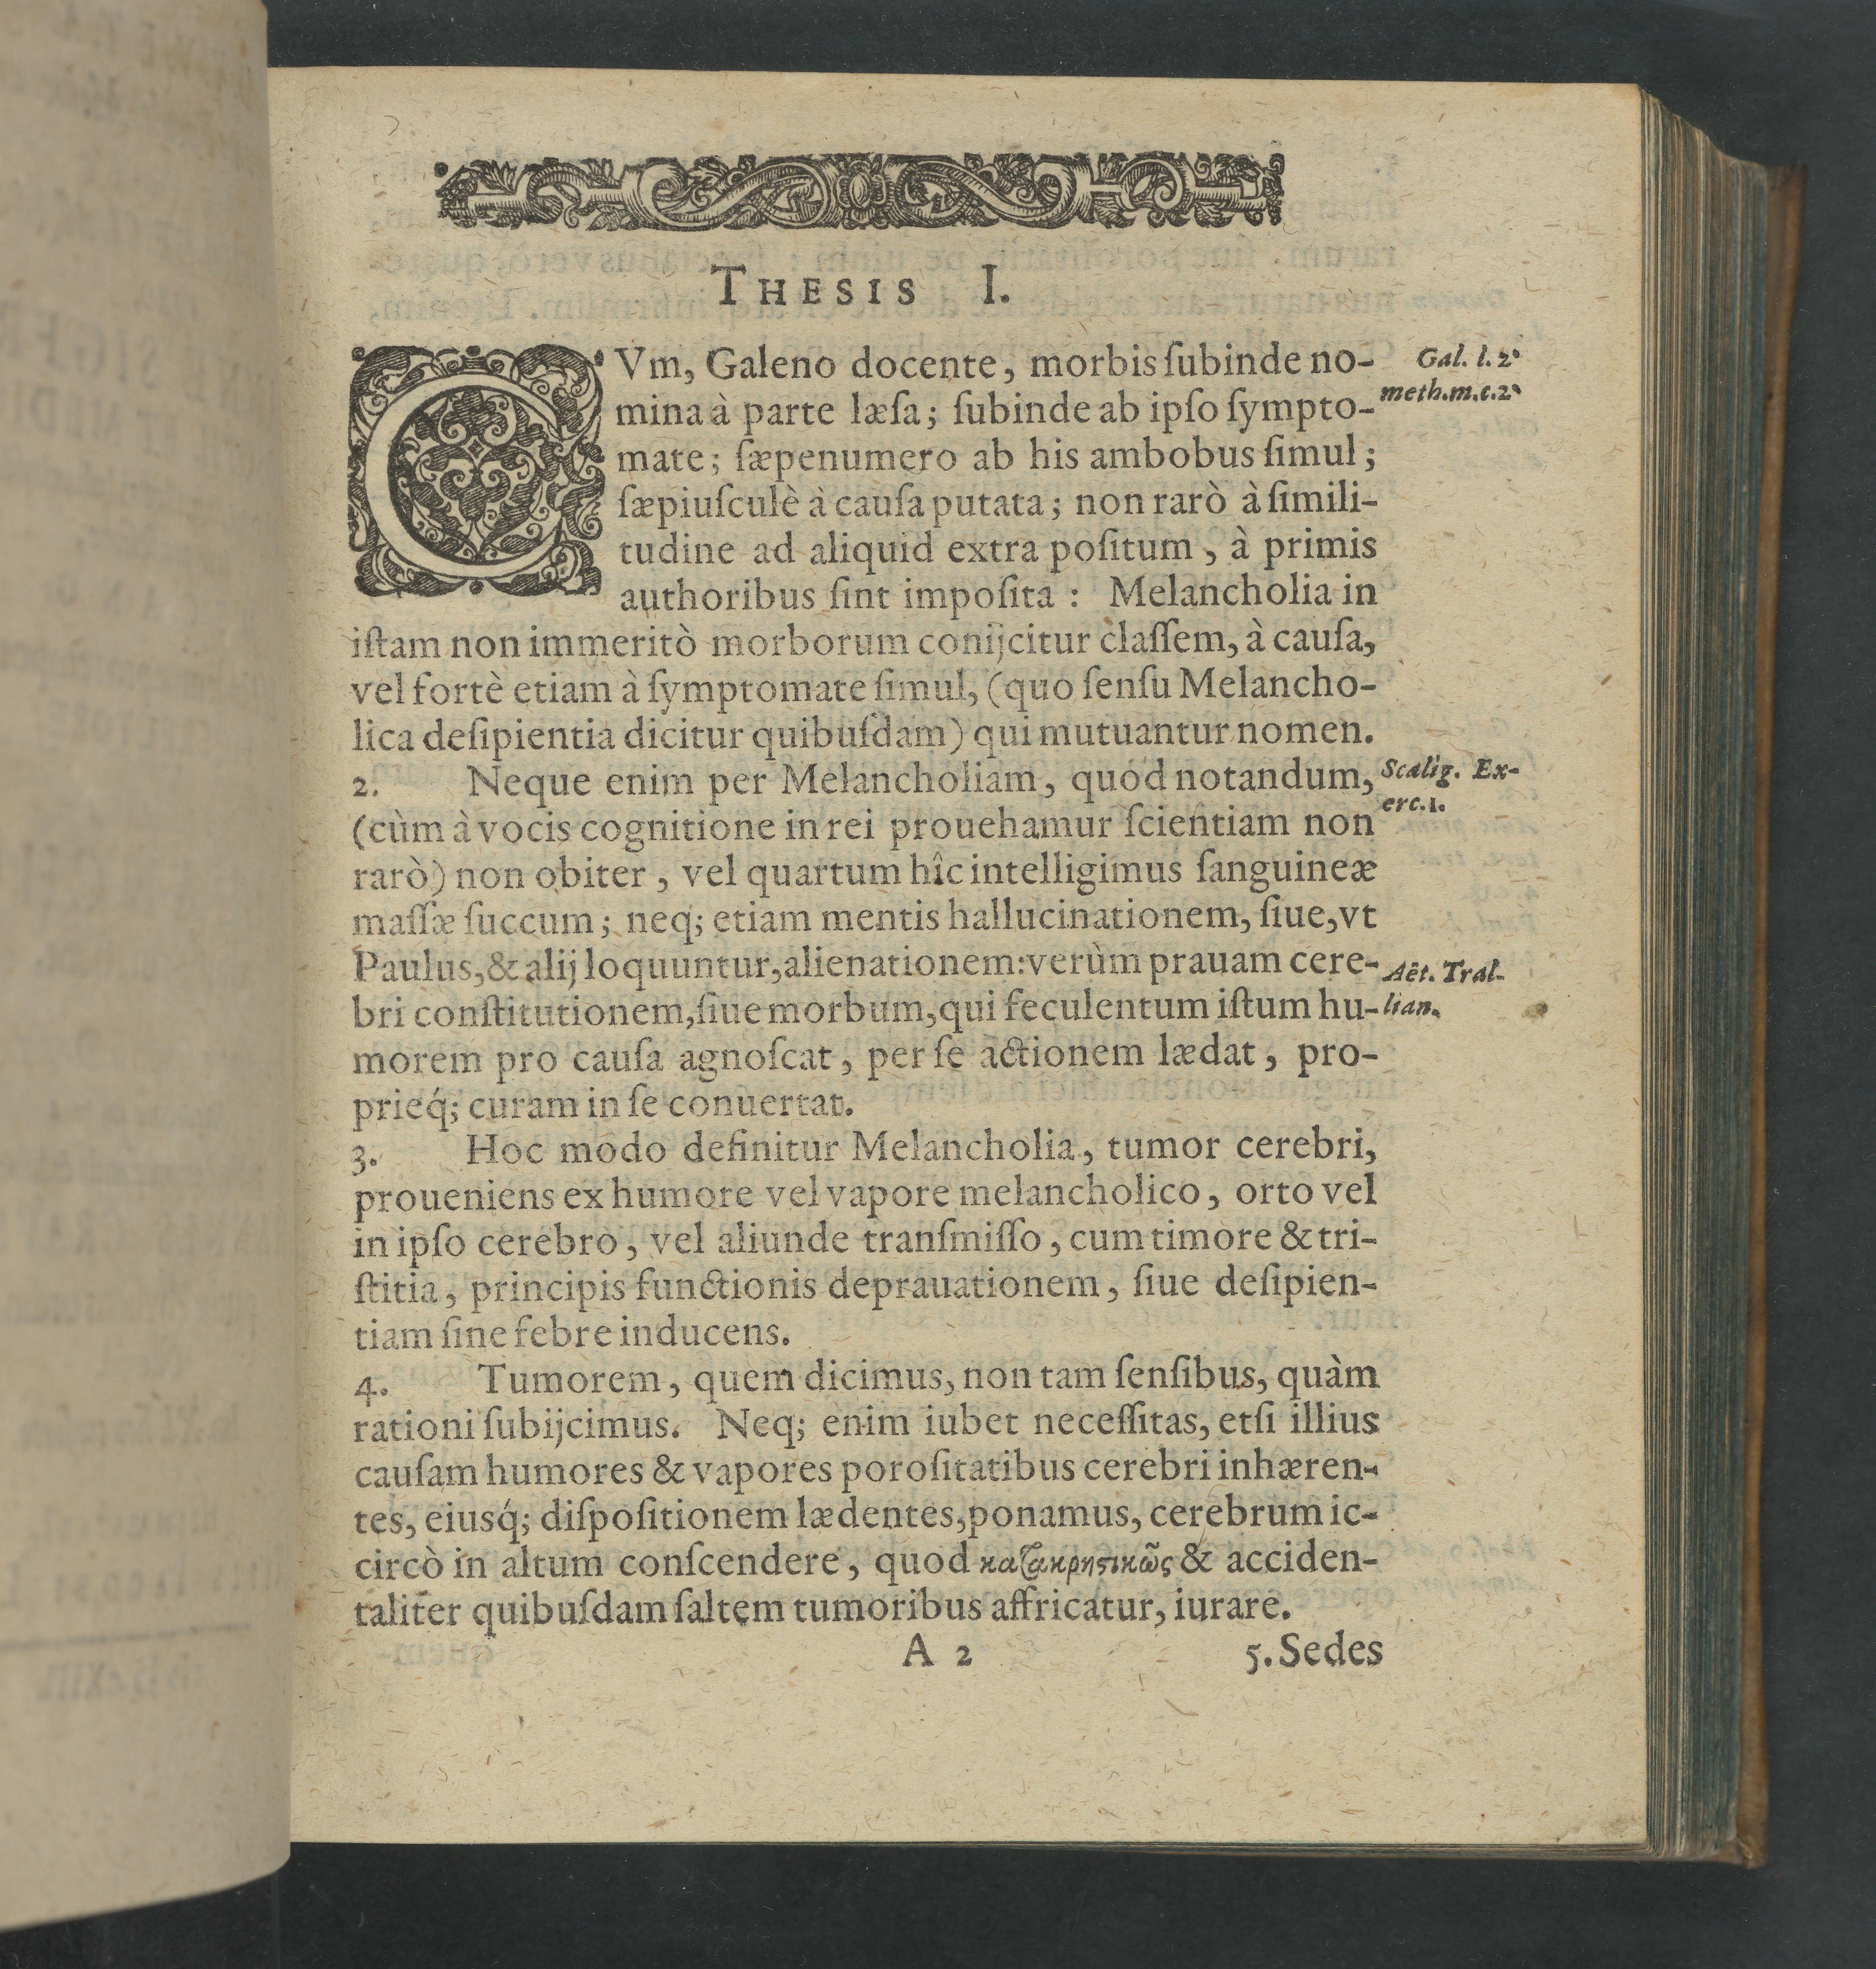 THESIS I.
CVm, Galeno docente, morbis ſubinde no-
mina à parte læſa; ſubinde ab ipſo ſympto-
mate; ſæpenumero ab his ambobus ſimul;
ſæpiuſculè à cauſa putata; non rarò à ſimili-
tudine ad aliquid extra poſitum, à primis
authoribus ſint impoſita: Melancholia in
iſtam non immeritò morborum conijcitur claſſem, à cauſa,
vel fortè etiam à ſymptomate ſimul, (quo ſenſu Melancho-
lica deſipientia dicitur quibuſdam) qui mutuantur nomen.
Gal. l. 2.
meth.m.c.2.
2. Neque enim per Melancholiam, quod notandum,
(cùm à vocis cognitione in rei prouehamur ſcientiam non
rarò) non obiter, vel quartum hîc intelligimus ſanguineæ
maſſæ ſuccum; neq; etiam mentis hallucinationem, ſiue, vt
Paulus, & alij loquuntur, alienationem: verùm prauam cere-
bri conſtitutionem, ſiue morbum, qui feculentum iſtum hu-
morem pro cauſa agnoſcat, per ſe actionem lædat, pro-
prieq́; curam in ſe conuertat.
Scalig. Ex-
erc.1.
Aët. Tral-
lian.
3. Hoc modo definitur Melancholia, tumor cerebri,
proueniens ex humore vel vapore melancholico, orto vel
in ipſo cerebro, vel aliunde tranſmiſſo, cum timore & tri-
ſtitia, principis functionis deprauationem, ſiue deſipien-
tiam ſine febre inducens.
4. Tumorem, quem dicimus, non tam ſenſibus, quàm
rationi ſubijcimus. Neq; enim iubet neceſſitas, etſi illius
cauſam humores & vapores poroſitatibus cerebri inhæren-
tes, eiusq́; diſpoſitionem lædentes, ponamus, cerebrum ic-
circò in altum conſcendere, quod καταχρηστικῶς & acciden-
taliter quibuſdam ſaltem tumoribus affricatur, iurare.
A 2 5. Sedes